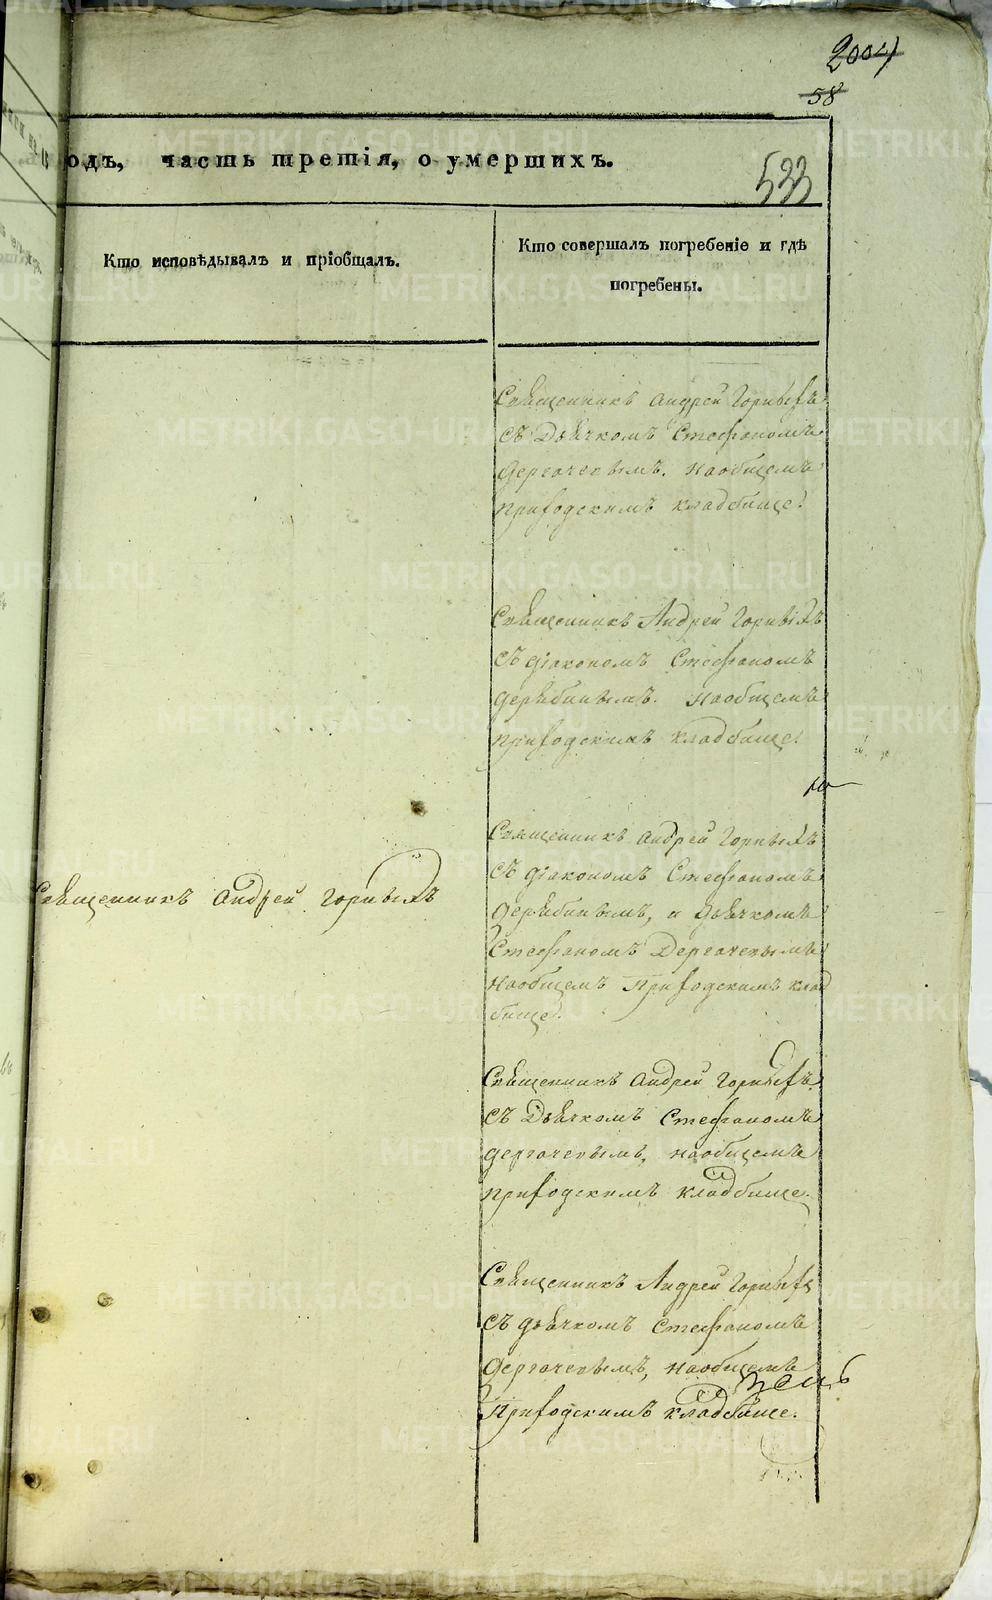 2004
58
одъ, часть третія, о умершихъ.
533
Кто исповѣдывалъ и пріобщалъ.
Кто совершалъ погребеніе и гдѣ
погребены.
Священникъ Андрей Горныхъ
съ Дьячкомъ Стефаномъ
Дергачевымъ. на общемъ
приходскимъ кладбище.
Священникъ Андрей Горныхъ
съ діакономъ Стефаномъ
Дерябинымъ. на общемъ
приходскимъ кладбище.
Священникъ Андрей Горныхъ
съ діакономъ Стефаномъ
Дерябинымъ, и дьячкомъ
Стефаномъ Дергачевымъ
на общемъ приходскимъ клад
бище.
Священникъ Андрей Горныхъ
Священникъ Андрей Горныхъ
съ Дьячкомъ Стефаномъ
Дергачевымъ, на общемъ
приходскимъ кладбище.
Священникъ Андрей Горныхъ
съ дьячкомъ Стефаномъ
Дергачевымъ, на общемъ
приходскимъ кладбище.
METRIKI.GASO-URAL.RU